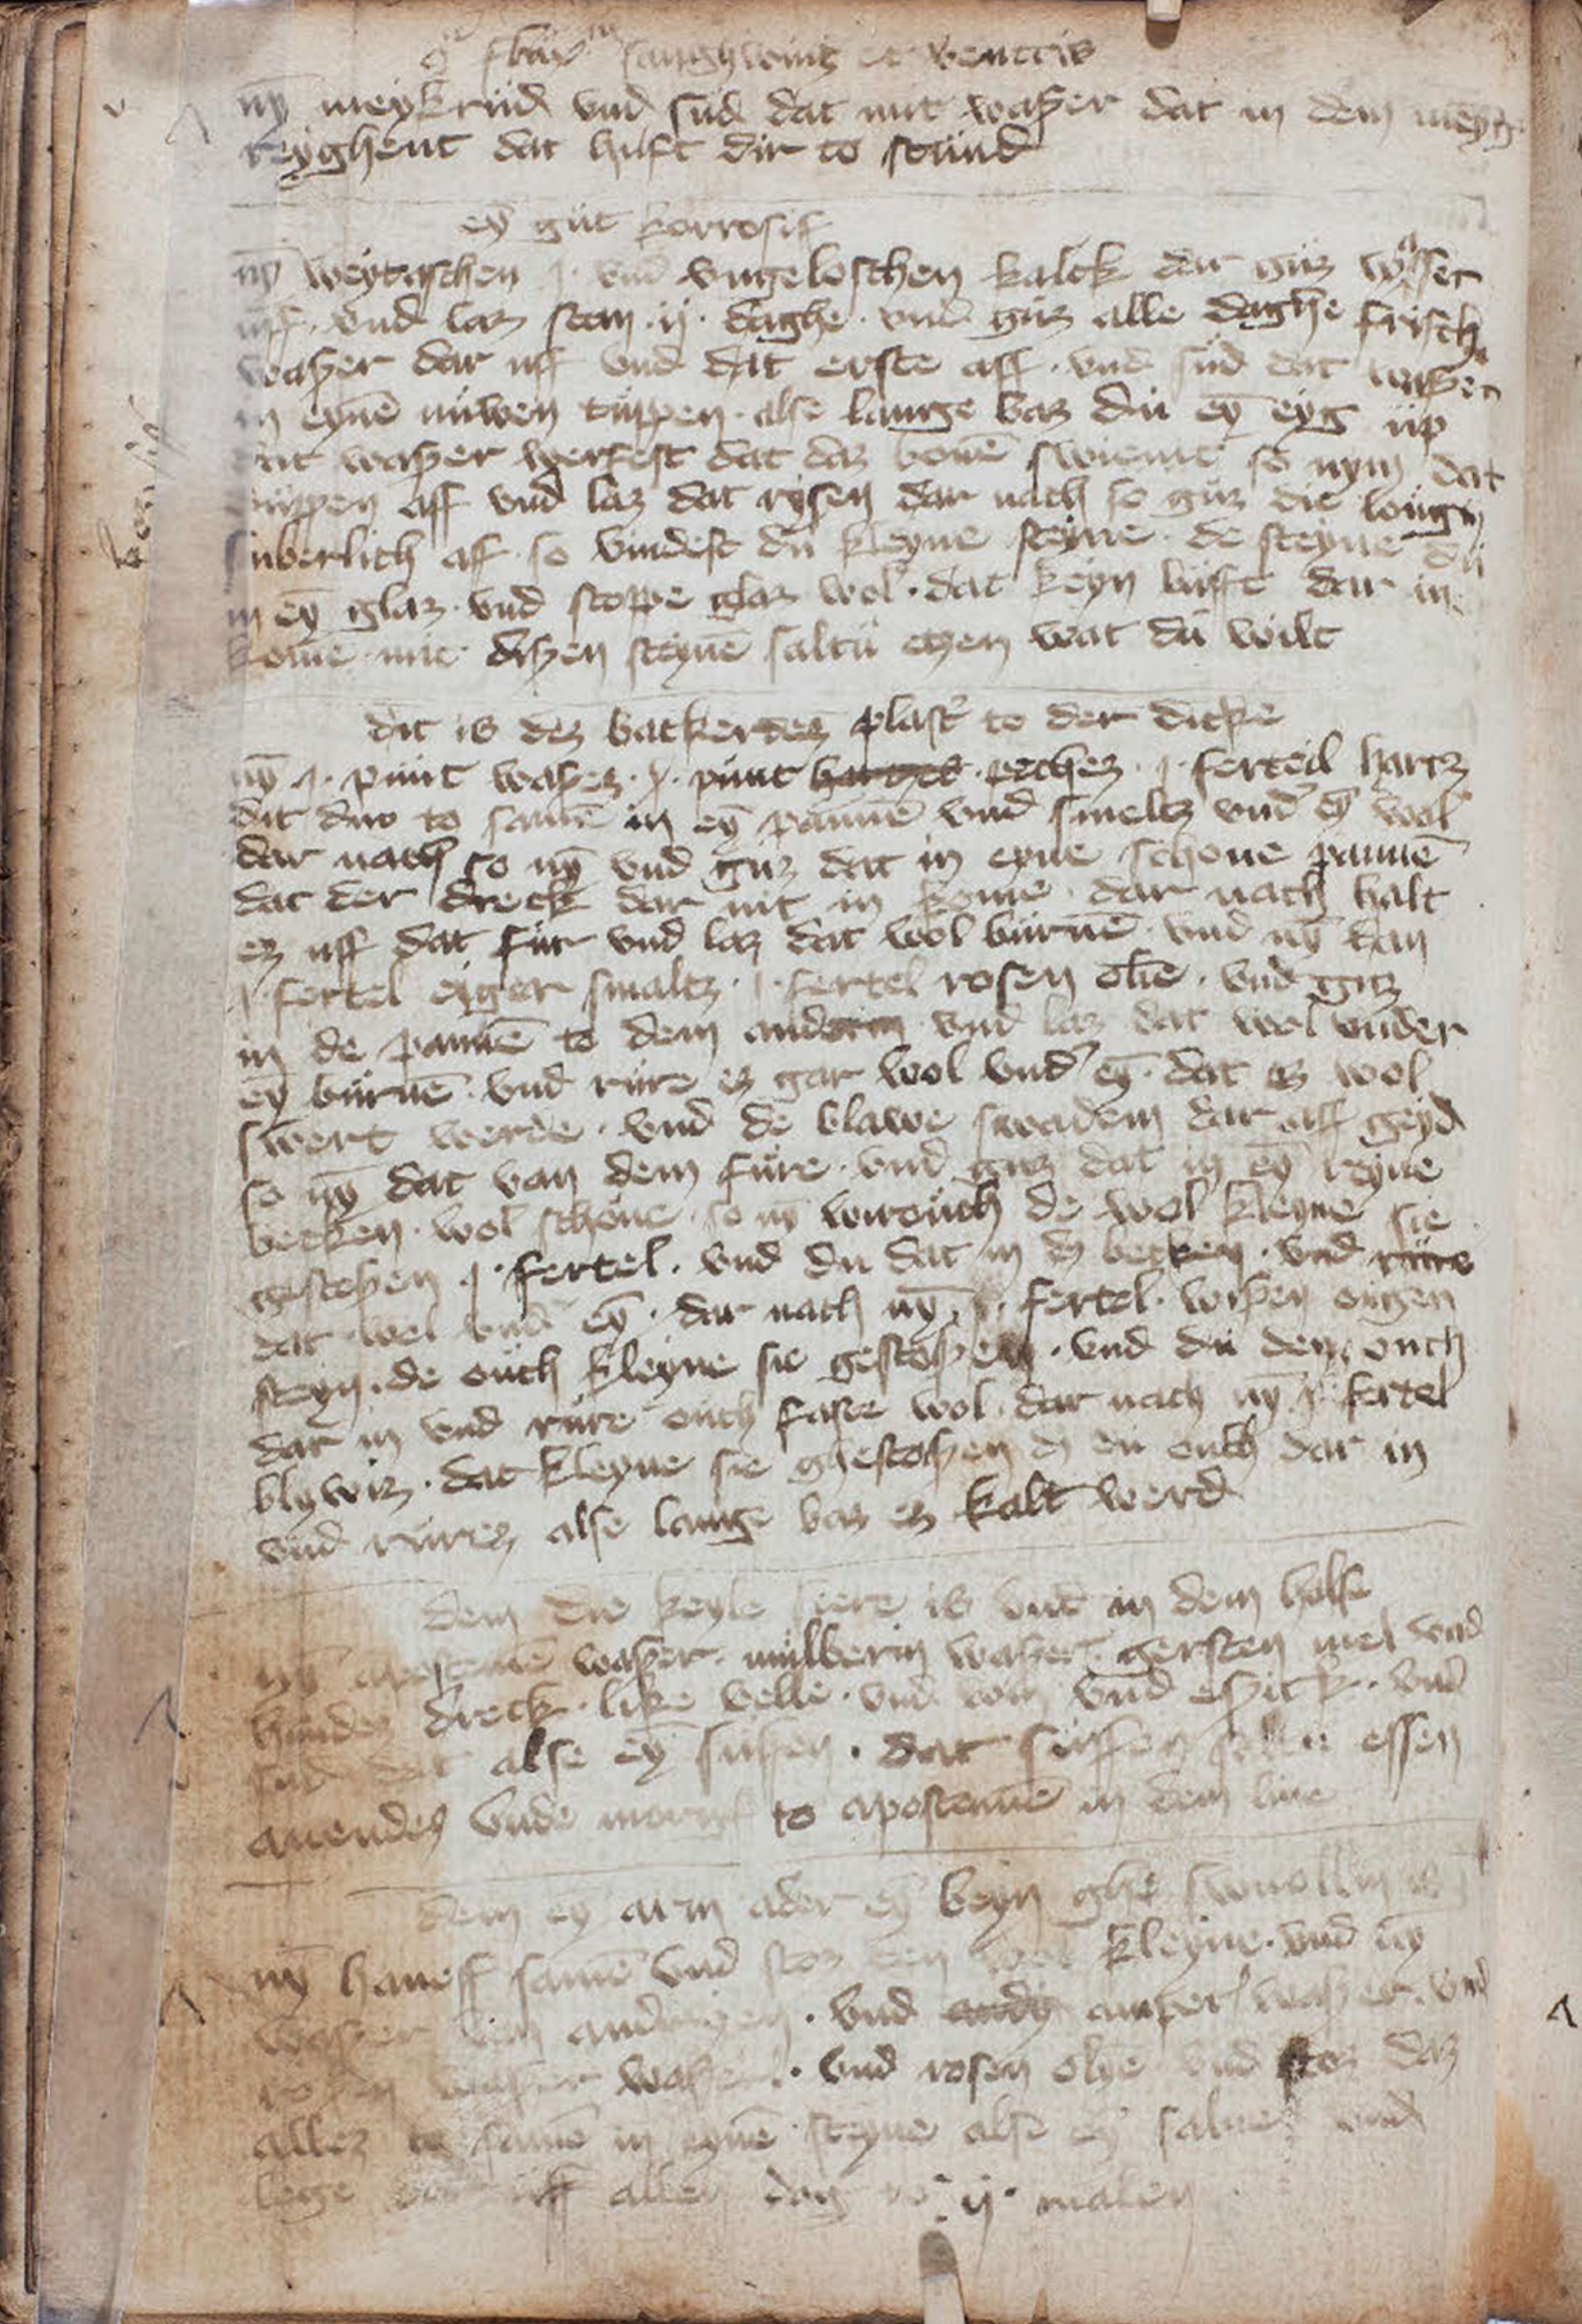 sanguinis et ventris
nȳ meykrud vnd sud dat mit waßer dat in dem
reyghent dat hilft dir to stund
eȳ gut korrosif
nȳ weytaschen j· vnd vngeloschen kalck dar guz waſſer
uff· vnd laz stan ·ij· daghe· vnd guz alle daghe frisch
waßer dar uff vnd dat erste aff· vnd sud dat waßer
in eynē nuwen tuppen· alse lange baz du eȳ eyg up
dat waßer werfest dat daz bouē swiemt so nym dat
tuppen aff vnd laz dat rysen dar nach so guz die lougē
suberlich aff· so vindest du kleyne steyne· de steyne du
in eȳ glaz· vnd stoppe glaz wol· dat keyn lufft dar in
kome mit dißen steynē saltu etzen wat du wilt
dit is dez backerdez plast' to der dicke
nȳ j· punt waßez· j· punt peckez· j· ferteil hartz
dit duo to samē in eȳ pannē vnd smeltz vnd' eȳ wol
dar nach so nȳ vnd guz dat in eyne schone pannē
dat der dreck dar nit in kome· dar nach halt
ez uff dat fur vnd laz dat wol burnē· vnd nȳ dan
j· fertel eyger smaltz· j· fertel rosen olie· vnd guz
in de pannē to dem andern vnd laz dat wol vnder
eȳ burnē· vnd rure ez gar wol vnd' eȳ· dat ez wol
swert werde· vnd de blawe swadem dar aff geyd
so nȳ dat van dem fure· vnd guz dat in eȳ reyne
becken· wol schone· so nȳ wirouch de wol kleyne sie
gestoßen j· fertel· vnd du dat in dz becken· vnd rure
dat wol vnd' eȳ· dar nach nȳ j· fertel· wißen ougen
steyn· de ouch kleyne sie gestoßen· vnd du den ouch
dar in vnd rure ouch faste wol· dar nach nȳ j· fertel
blywiz· dat kleyne sie ghestoßen dz du ouch dar in
vnd rurez alse lange baz ez kalt werd
dem die keyle seere is vnd in dem halse
nȳ apostemē waßer· mulberin waßer· gersten mel vnd
hundez dreck· like velle· vnd vnd eßick· vnd
sud dat alse eȳ suffen· dat suffen essen
auendez vnde to apostemē in dem liue
dem eȳ arm ader eȳ beyn ghe swollin is
nȳ haneff samē vnd stoz den wol kleyne· vnd nȳ
waßer· vnd amper waßer· vnd
waßer· vnd rosen olye vnd stoz daz
allez to samē in eynē steyne alse eȳ salue vnd
lege uff allen dag to· ij· malen